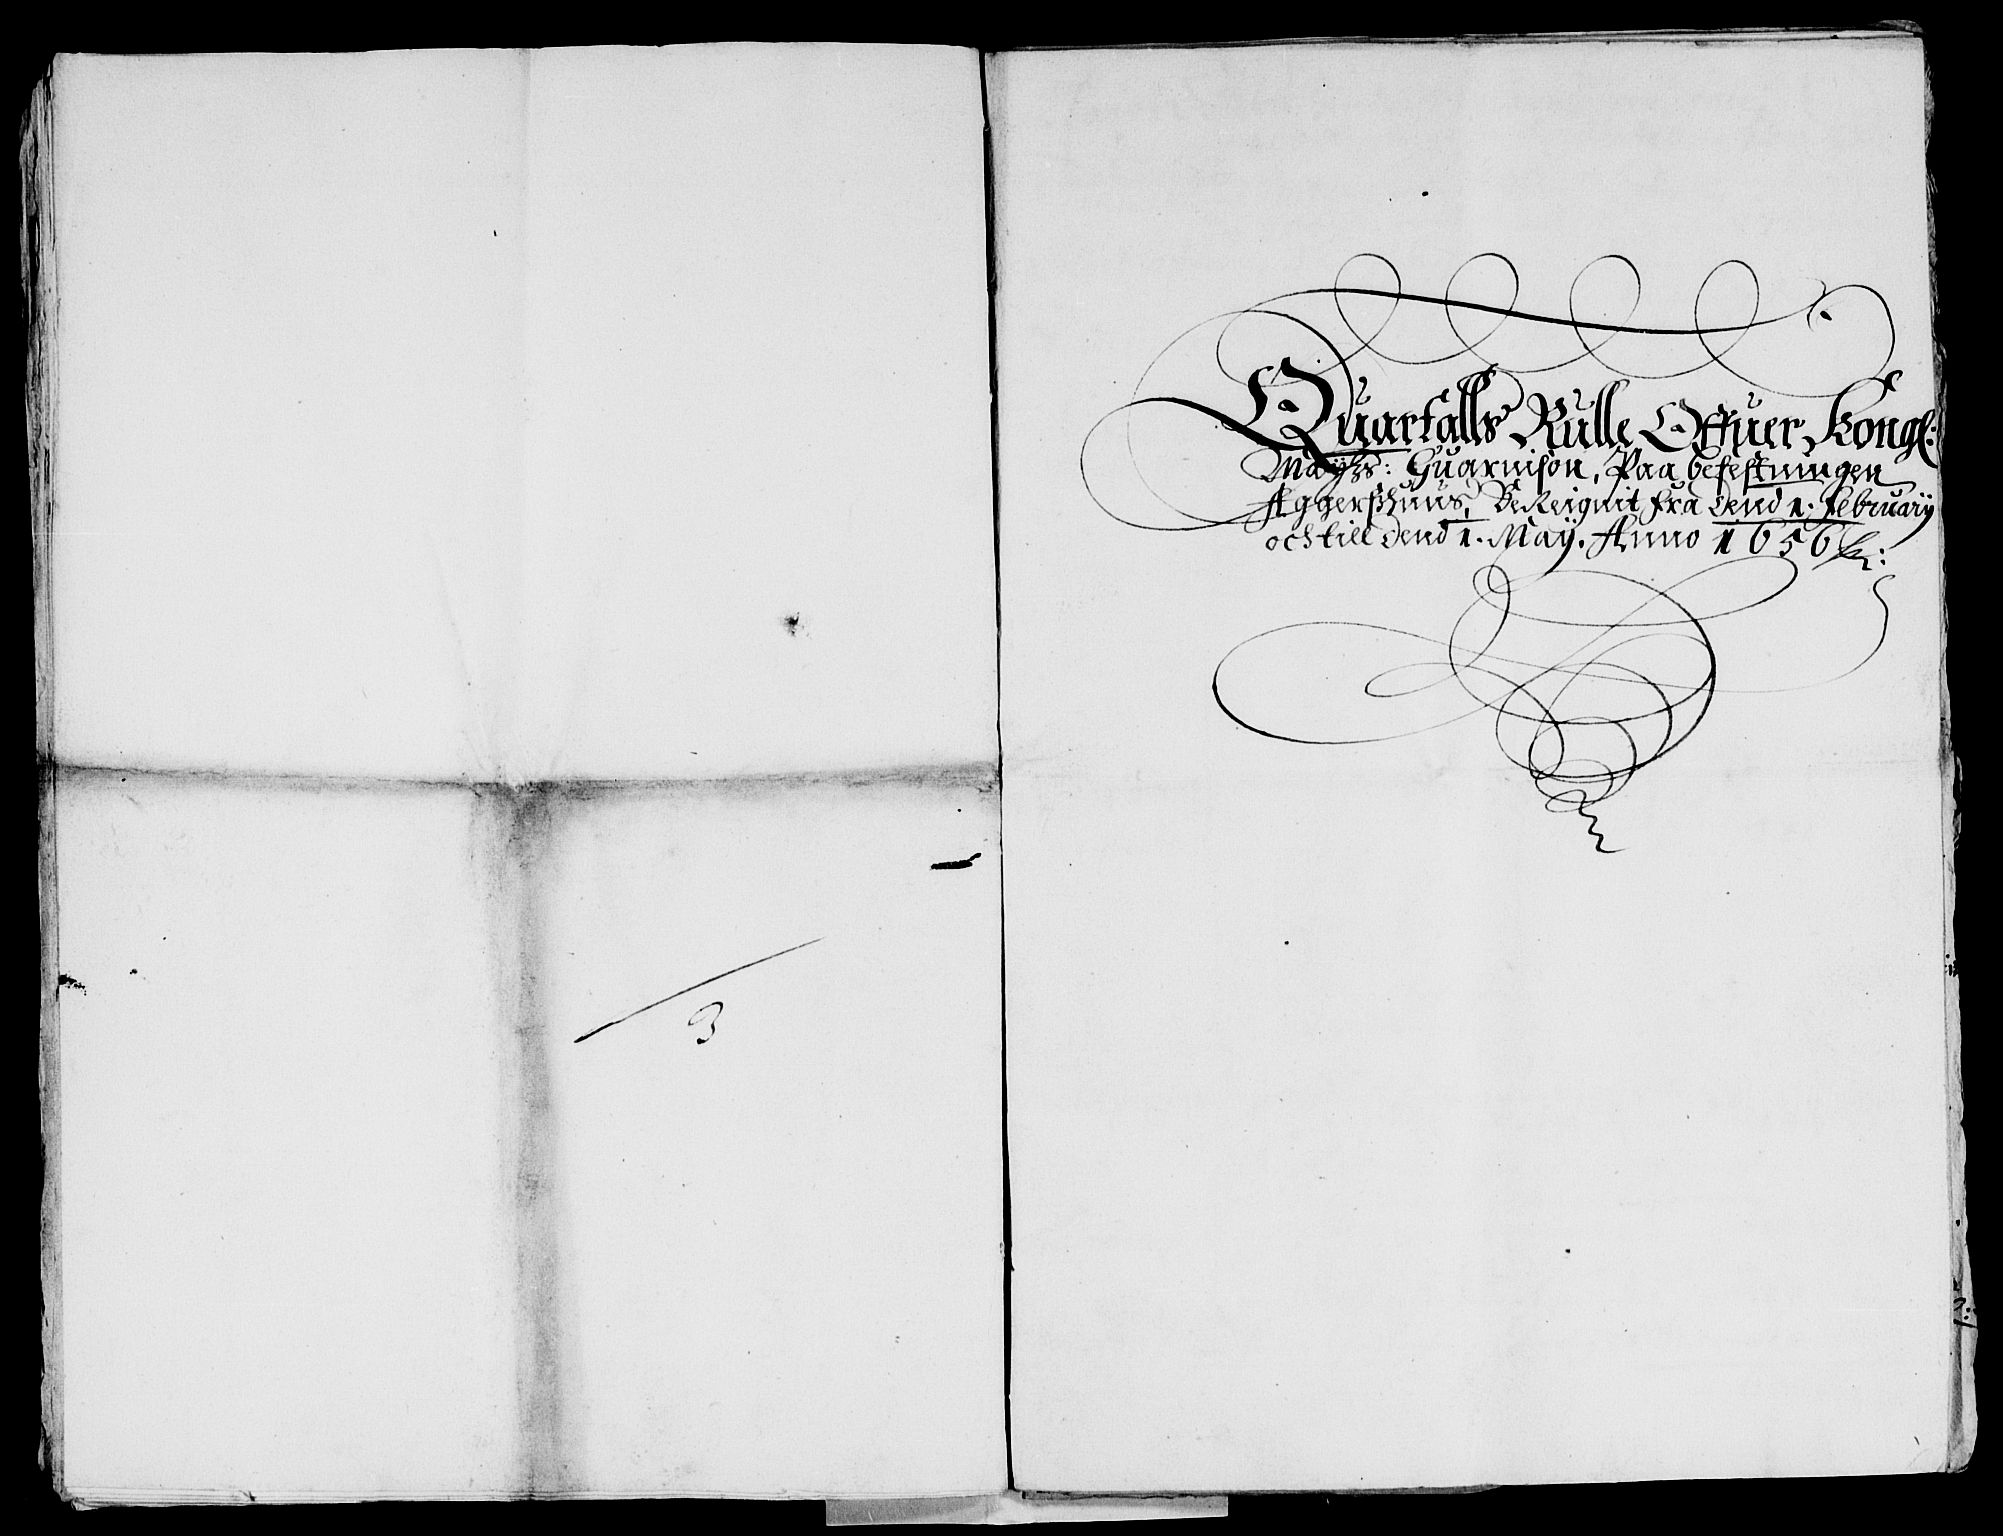 3
Quartalls Rulle Offuer Kongl:
Mayts: Guarnison, Paa befestningen
Aggershuus, Bereignit fra dend 1. February
och till dend 1. May. Anno 1656